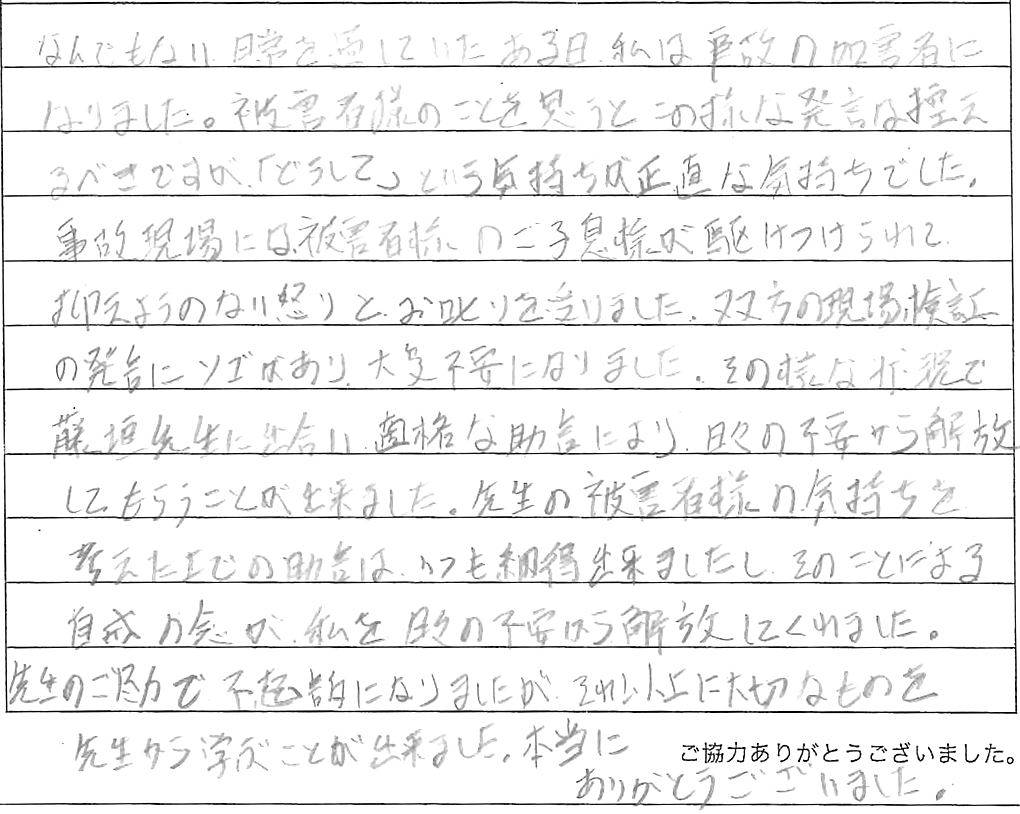 なんでもない日常を過していたある日、私は事故の加害者に
なりました。被害者様のことを思うとこの様な発言は控え
るべきですが、「どうして」という気持ちが正直な気持ちでした。
事故現場には被害者様のご子息様が駆けつけられて
抑えようのない怒りと、お叱りを受けました。双方の現場検証
の発言にソゴがあり、大変不安になりました。その様な状況で
藤垣先生に出会い、適格な助言により、日々の不安から解放
してもらうことが出来ました。先生の被害者様の気持ちを
考えた上での助言は、いつも納得出来ましたし、そのことによる
自戒の念が、私を日々の不安から解放してくれました。
先生のご尽力で不起訴になりましたが、それ以上に大切なものを
先生から学ぶことが出来ました。本当に
ありがとうございました。
ご協力ありがとうございました。